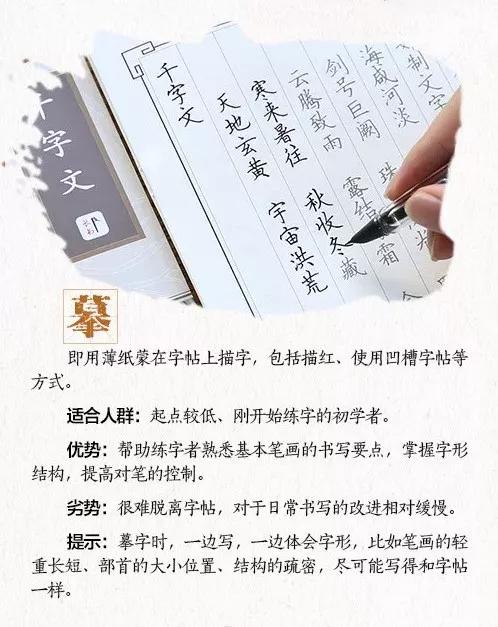 千字文
千字文
天地玄黄
宇宙洪荒
寒来暑往
秋收冬藏
云腾致雨
露结
霜
剑号巨阙
珠
光
海咸河淡
制文字
摹
即用薄纸蒙在字帖上描字，包括描红、使用凹槽字帖等
方式。
适合人群：起点较低、刚开始练字的初学者。
优势：帮助练字者熟悉基本笔画的书写要点，掌握字形
结构，提高对笔的控制。
劣势：很难脱离字帖，对于日常书写的改进相对缓慢。
提示：摹字时，一边写，一边体会字形，比如笔画的轻
重长短、部首的大小位置、结构的疏密，尽可能写得和字帖
一样。